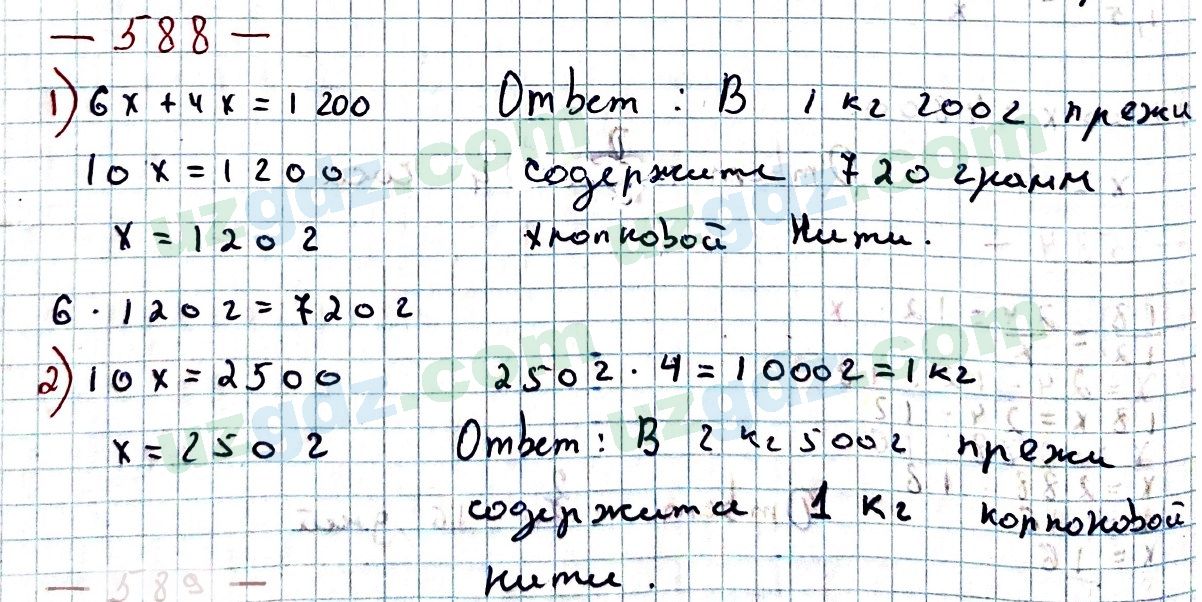 — 588 —
1) 6x + 4x = 1200
10x = 1200
x = 120г
6 · 120г = 720г
Ответ: В 1 кг 200г прежи
содержите 720 грамм
хлопковой нити.
2) 10x = 2500
x = 250г
250г · 4 = 1000г = 1кг
Ответ: В 2 кг 500г прежи
содержите 1 кг корпоковой
нити.
— 589 —
uzgdz.com
uzgdz.com
uzgdz.com
uzgdz.com